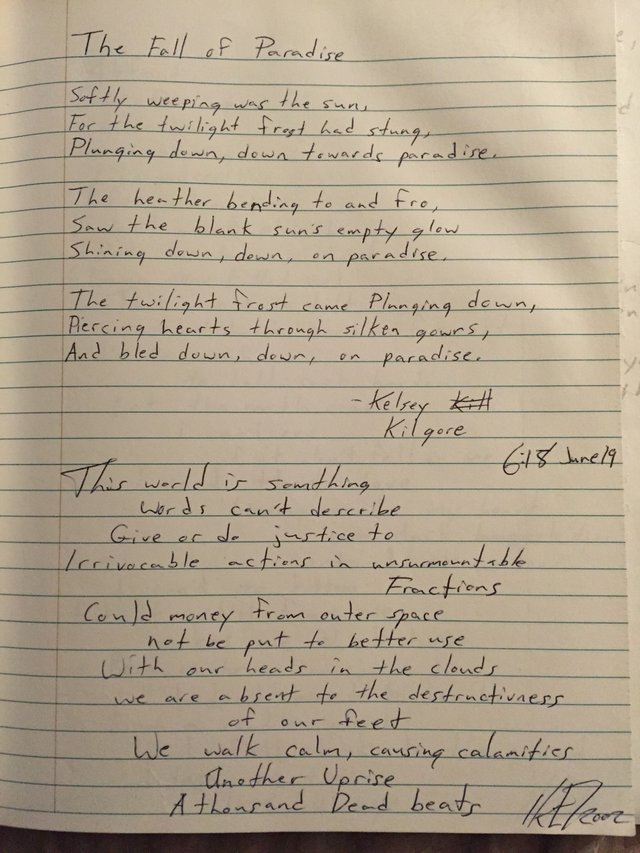 The Fall of Paradise
Softly weeping was the sun,
For the twilight frost had stung,
Plunging down, down towards paradise.
The heather bending to and fro,
Saw the blank sun's empty glow
Shining down, down, on paradise.
The twilight frost came Plunging down,
Piercing hearts through silken gowns,
And bled down, down, on paradise.
- Kelsey Kill
Kilgore
6:18 June 19
This world is somthing
Words can't describe
Give or do justice to
Irrivocable actions in unsurmountable
Fractions
Could money from outer space
not be put to better use
With our heads in the clouds
we are absent to the destructivness
of our feet
We walk calm, causing calamities
Another Uprise
A thousand Dead beats
2002